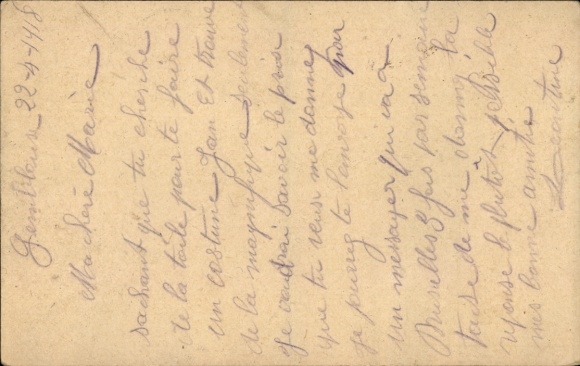 Gembloux 22-4-1918
Ma chère Marie
sachant que tu cherche
de la toile pour te faire
un costume Jean et trouve
de la magnifique seulement
je voudrai savoir le prix
que tu veux me donne
je pourrez te l'envoye par
un messager qui va à
Bruxelles 3 fois par semaine
tarde de me donnez ta
réponse le plutôt possible
mes bonne amitié
Léontine